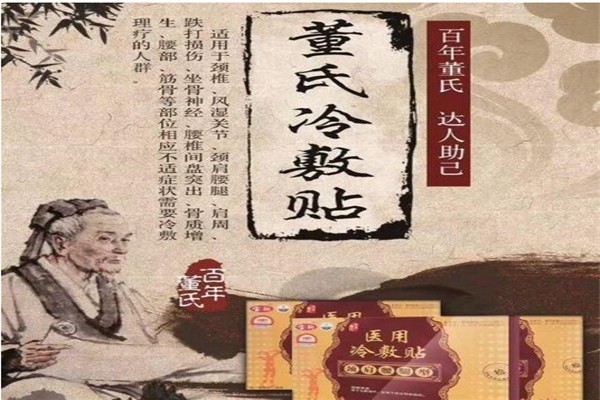 百年董氏 达人助己
董氏冷敷贴
适用于颈椎、风湿关节、颈肩腰腿、肩周、
跌打损伤、坐骨神经、腰椎间盘突出、骨质增
生、腰部、筋骨等部位相应不适症状需要冷敷
理疗的人群。
百年
董氏
医用
冷敷贴
颈肩腰腿型